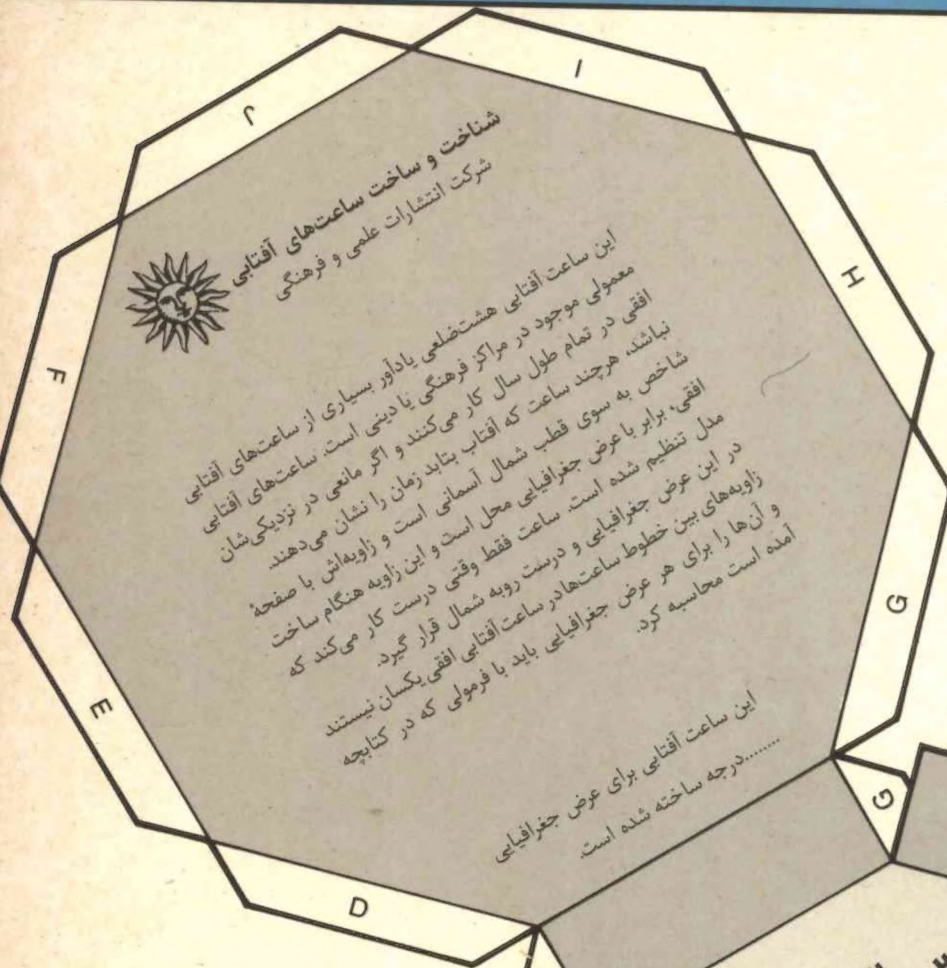 شناخت و ساخت ساعت‌های آفتابی
شرکت انتشارات علمی و فرهنگی
این ساعت آفتابی هشت‌ضلعی یادآور بسیاری از ساعت‌های آفتابی
معمولی موجود در مراکز فرهنگی یا دینی است. ساعت‌های آفتابی
افقی در تمام طول سال کار می‌کنند و اگر مانعی در نزدیکی‌شان
نباشد، هرچند ساعت که آفتاب بتابد زمان را نشان می‌دهند.
شاخص به سوی قطب شمال آسمانی است و زاویه‌اش با صفحهٔ
افقی، برابر با عرض جغرافیایی محل است و این زاویه هنگام ساخت
مدل تنظیم شده است. ساعت فقط وقتی درست کار می‌کند که
در این عرض جغرافیایی و درست روبه شمال قرار گیرد.
زاویه‌های بین خطوط ساعت‌ها در ساعت آفتابی افقی یکسان نیستند
و آن‌ها را برای هر عرض جغرافیایی باید با فرمولی که در کتابچه
آمده است محاسبه کرد.
این ساعت آفتابی برای عرض جغرافیایی
........درجه ساخته شده است.
J
I
H
F
G
E
G
D